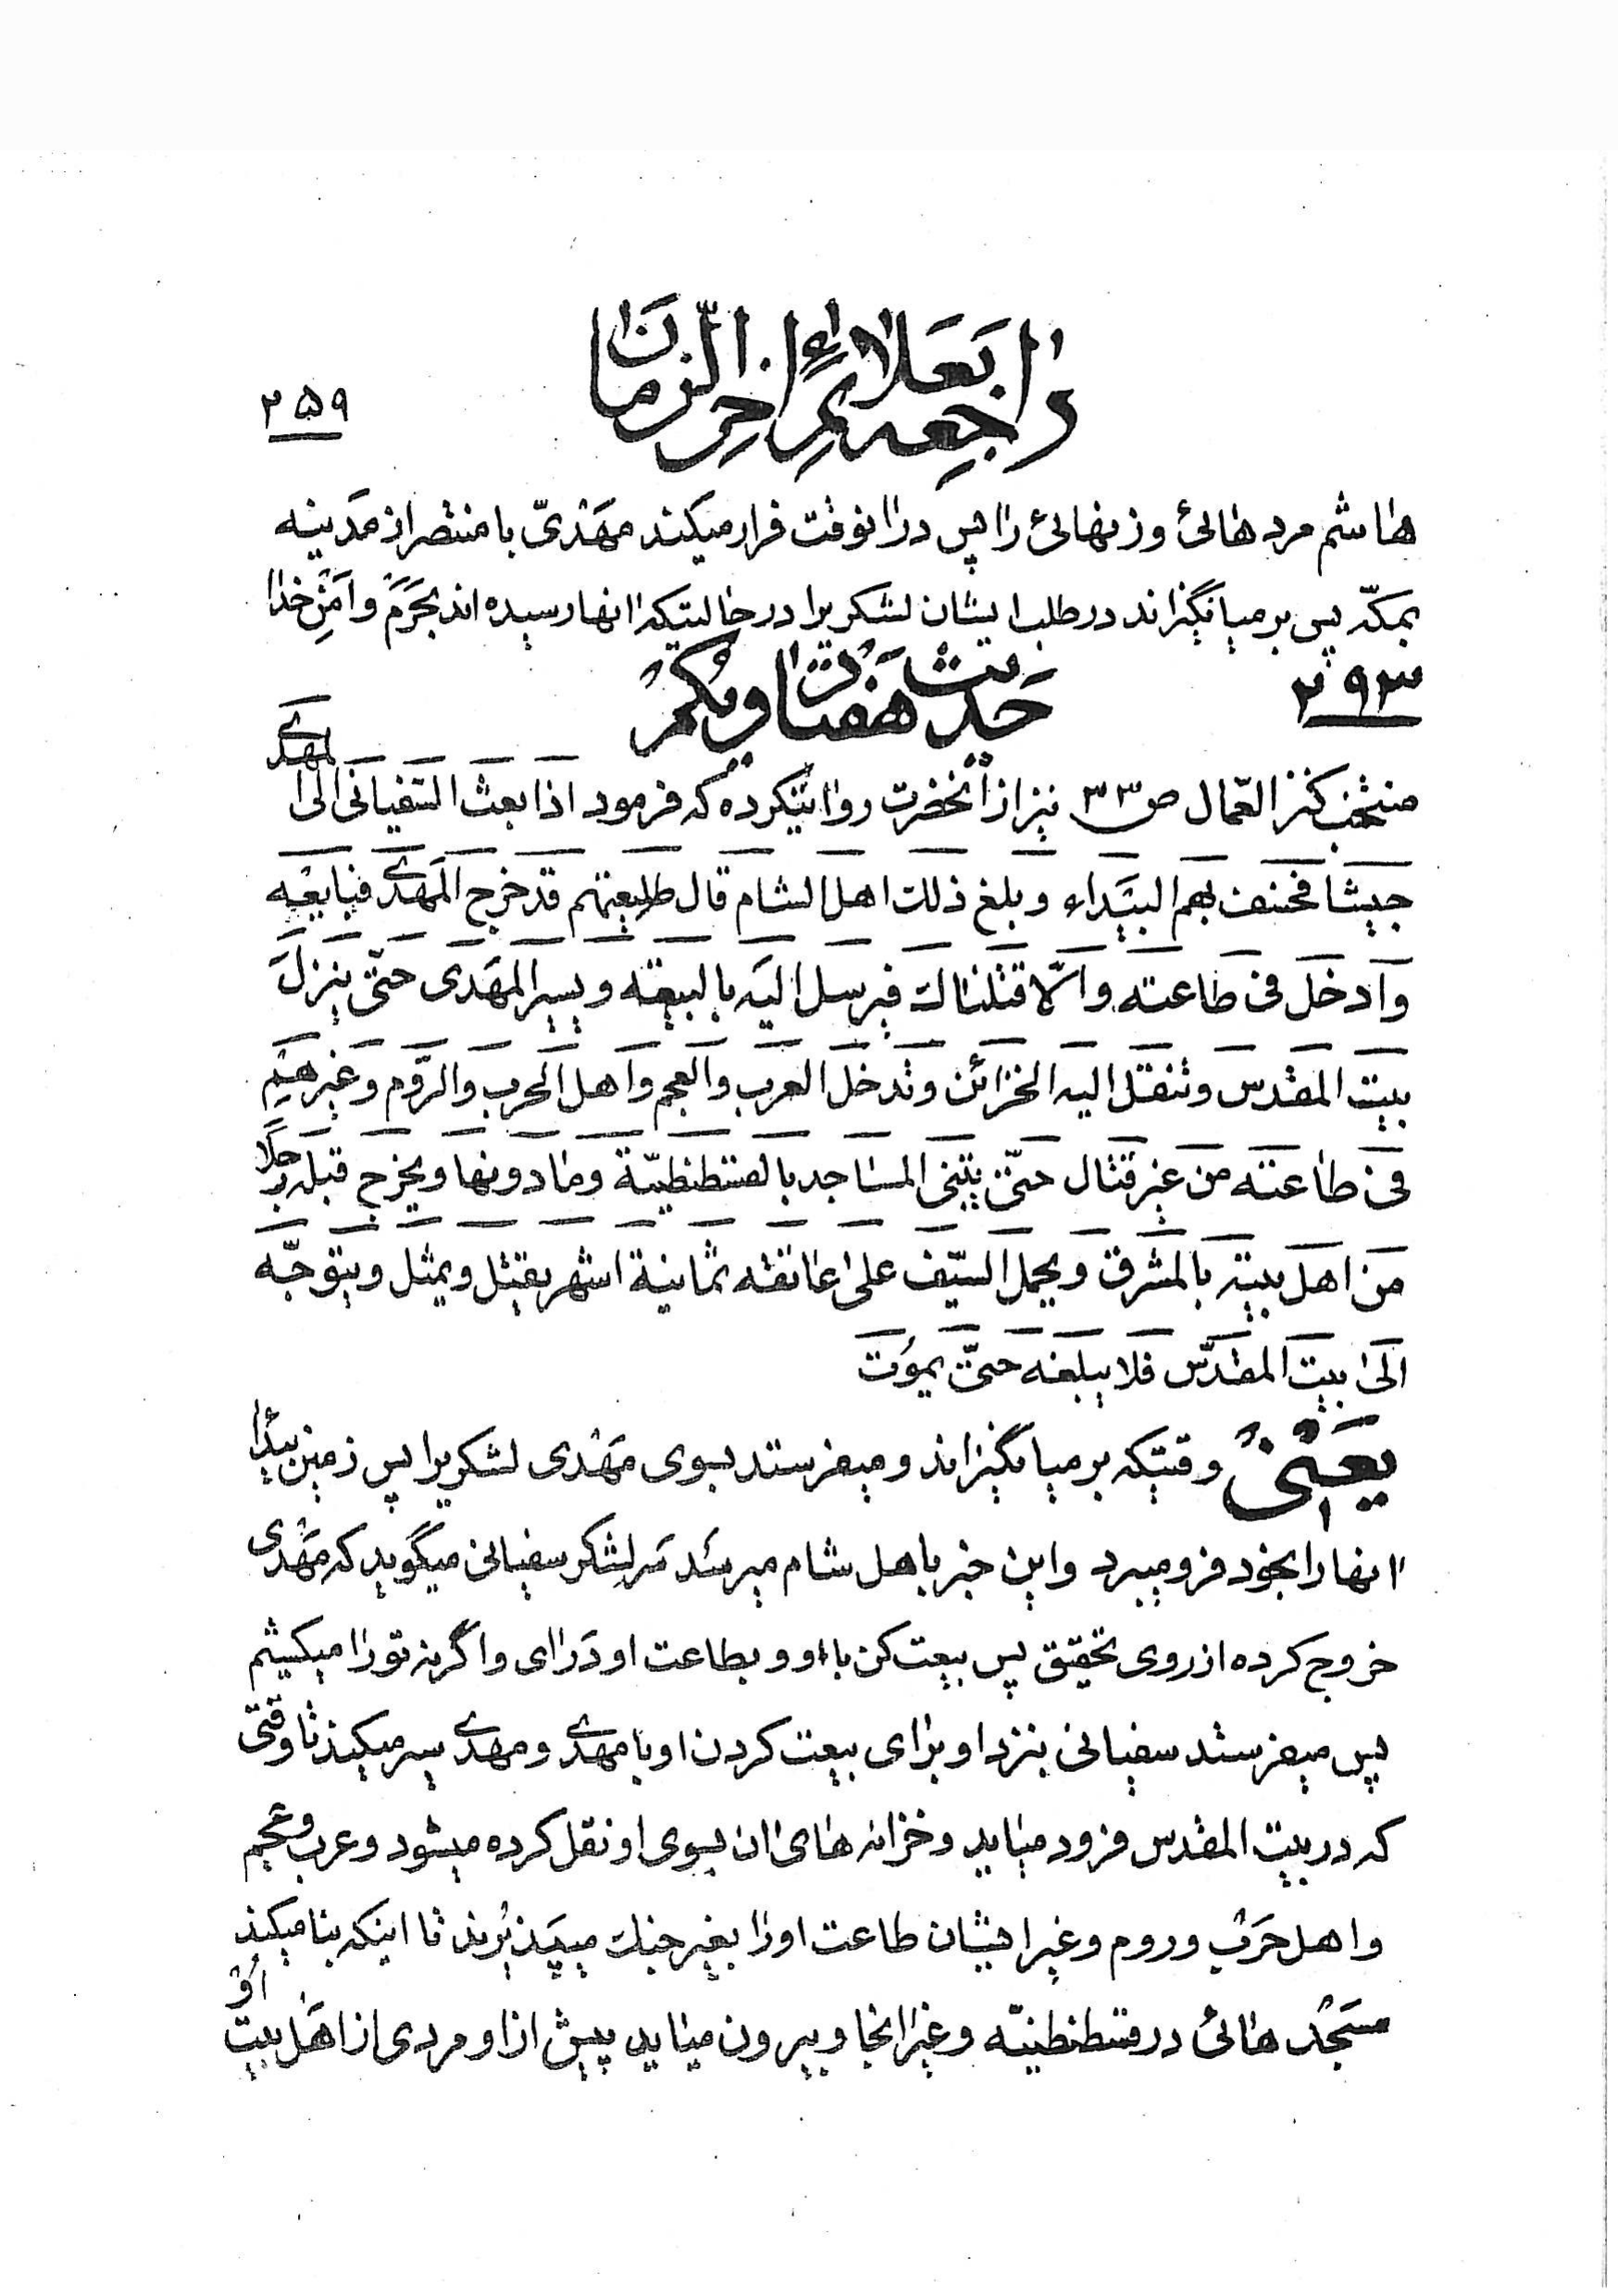 راجعه بعلائم اخر الزمان
۲۵۹
هاشم مردهائی و زنهائی را پس در انوقت فرار میکند مهدیّ با منتصر از مدینه
بمکّه پس بر میانگیزاند در طلب ایشان لشکریرا در حالتیکه انها رسیده اند بحرم و امن خدا
۲۹۳
حدیث هفتاد و یکم
منتخب کنز العمّال ص ۳۳ نیز از آنحضرت روایتکرده که فرمود اذا بعث السّفیانی الی المهدی
جیشا فخسف بهم البیداء و بلغ ذلک اهل الشام قال طلیعتهم قد خرج المهدی فبایعه
و ادخل فی طاعته و الّا قتلناک فیرسل الیه بالبیعة و یسیر المهدی حتّی ینزل
بیت المقدس و تنقل الیه الخزائن و تدخل العرب و العجم و اهل الحرب و الرّوم و غیرهم
فی طاعته من غیر قتال حتّی یبتنی المساجد بالقسطنطنیّة و ما دونها و یخرج قبله رجلا
من اهل بیته بالمشرق و یحمل السّیف علی عاتقه ثمانیة اشهر یقتل و یمثل و یتوجّه
الی بیت المقدّس فلا یبلغه حتّی یموت
یعنی وقتیکه بر میانگیزاند و میفرستد بسوی مهدی لشکریرا پس زمین بیدا
انها را بخود فرو میبرد و این خبر باهل شام میرسد سر لشکر سفیانی میگوید که مهدی
خروج کرده از روی تحقیق پس بیعت کن با او و بطاعت او درای و اگر نه تو را میکشیم
پس میفرستد سفیانی بنزد او برای بیعت کردن او با مهدی و مهدی سیر میکند تا وقتی
که در بیت المقدس فرود میاید و خزانه های ان بسوی او نقل کرده میشود و عرب و عجم
و اهل حرب و روم و غیر ایشان طاعت او را بغیر جنک میپذیرند تا اینکه بنا میکند
مسجد هائی در قسطنطنیّه و غیر انجا و بیرون میاید پیش از او مردی از اهل بیت او